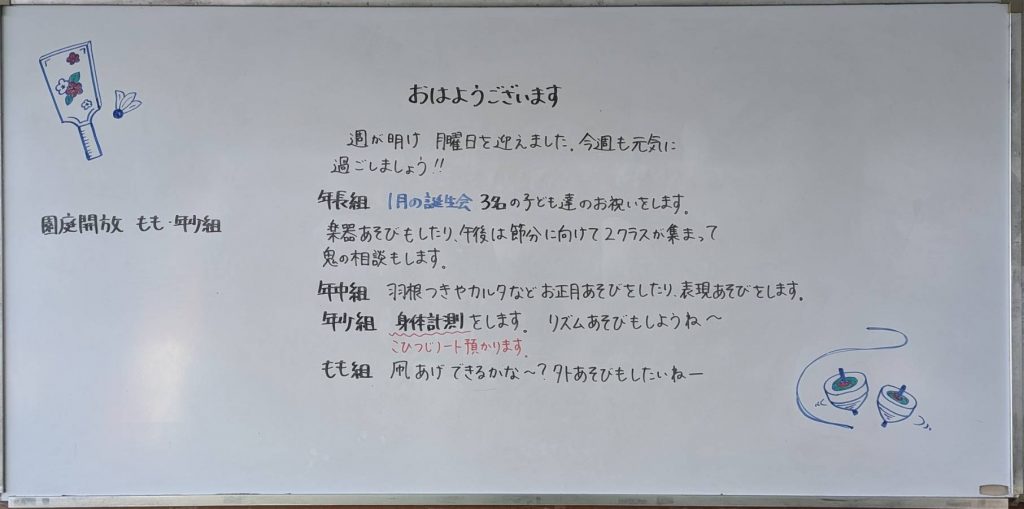 おはようございます
週が明け 月曜日を迎えました。今週も元気に
過ごしましょう!!
年長組 1月の誕生会 3名の子ども達のお祝いをします。
楽器あそびもしたり、午後は節分に向けて2クラスが集まって
鬼の相談もします。
年中組 羽根つきやカルタなどお正月あそびをしたり、表現あそびをします。
年少組 身体計測をします。 リズムあそびもしようね〜
こひつじノート預かります。
もも組 凧あげできるかな〜?外あそびもしたいねー
園庭開放 もも・年少組